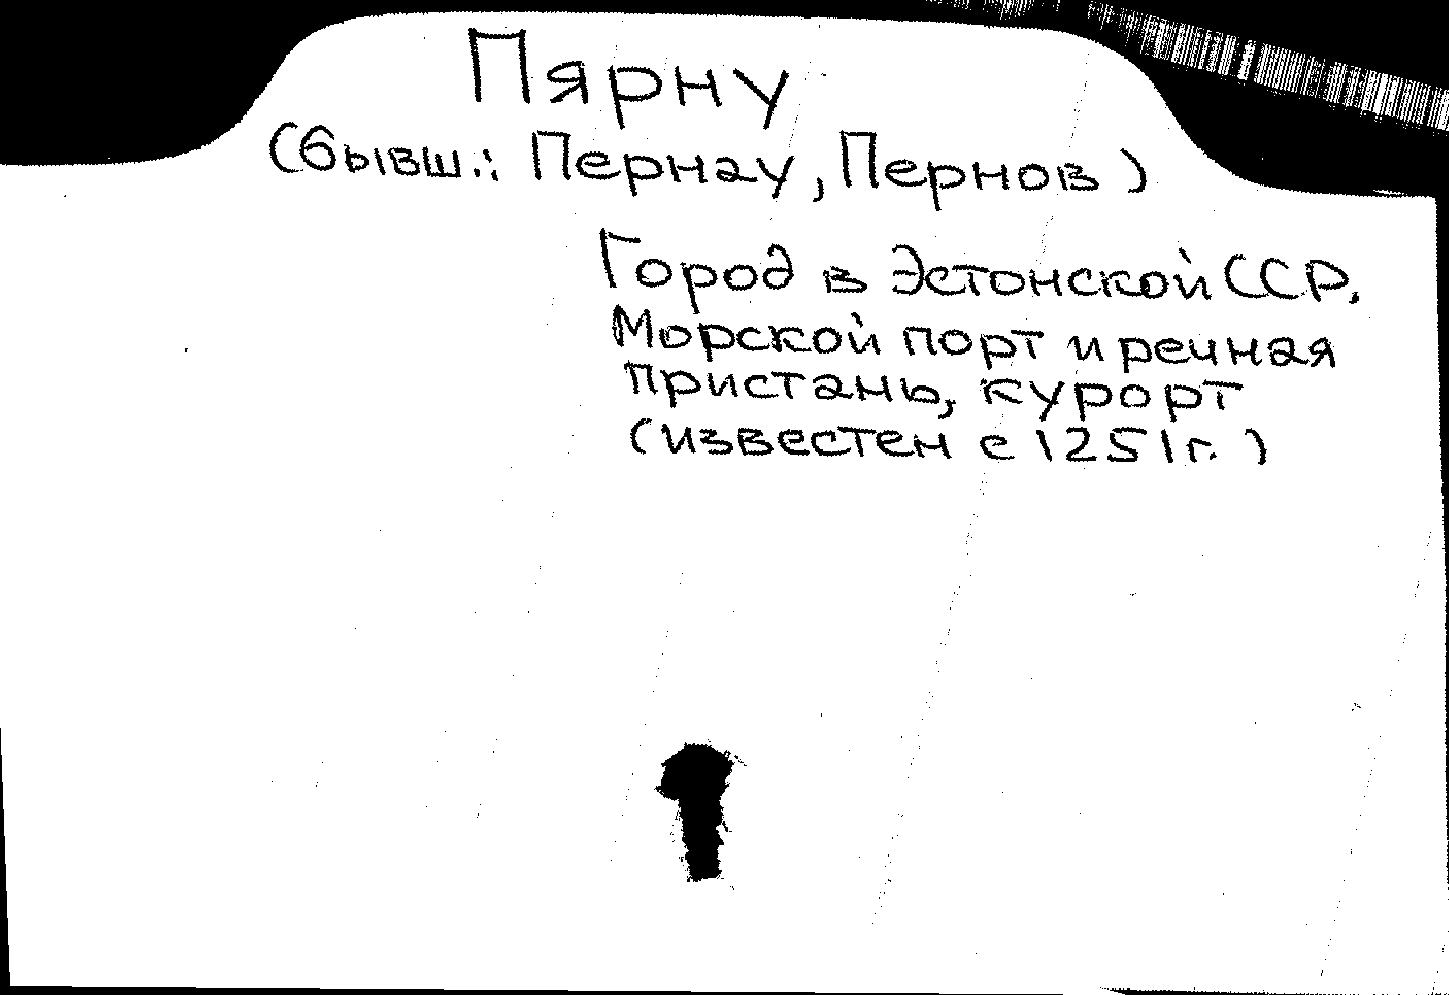 Пярну
(бывш.: Пернау, Пернов)
Город в Эстонской ССР.
Морской порт и речная
пристань, курорт
(известен с 1251г.)